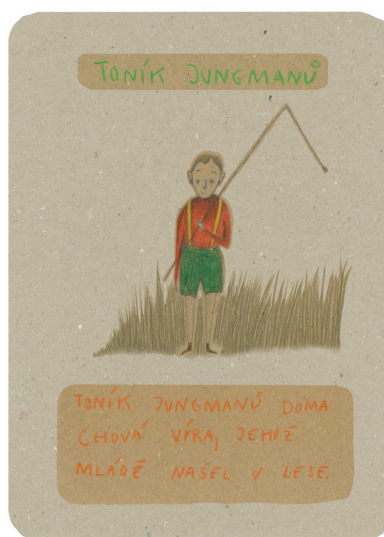 TONÍK JUNGMANŮ
TONÍK JUNGMANŮ DOMA
CHOVÁ VÝRA, JEHOŽ
MLÁDĚ NAŠEL V LESE.